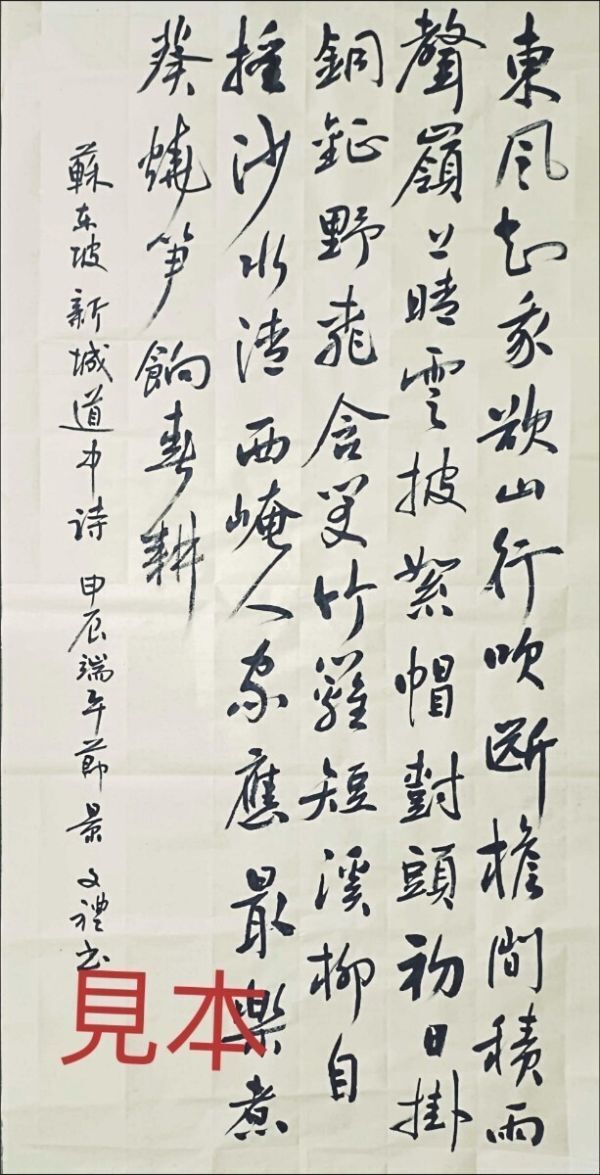 東风知我欲山行吹断檐間積雨
聲嶺上晴雲披絮帽對頭初日掛
銅鉦野桃含笑竹籬短溪柳自
摇沙水清西崦人家應最樂煮
葵燒笋餉春耕
蘇东坡新城道中诗 甲辰端午節 景文禮书
見本